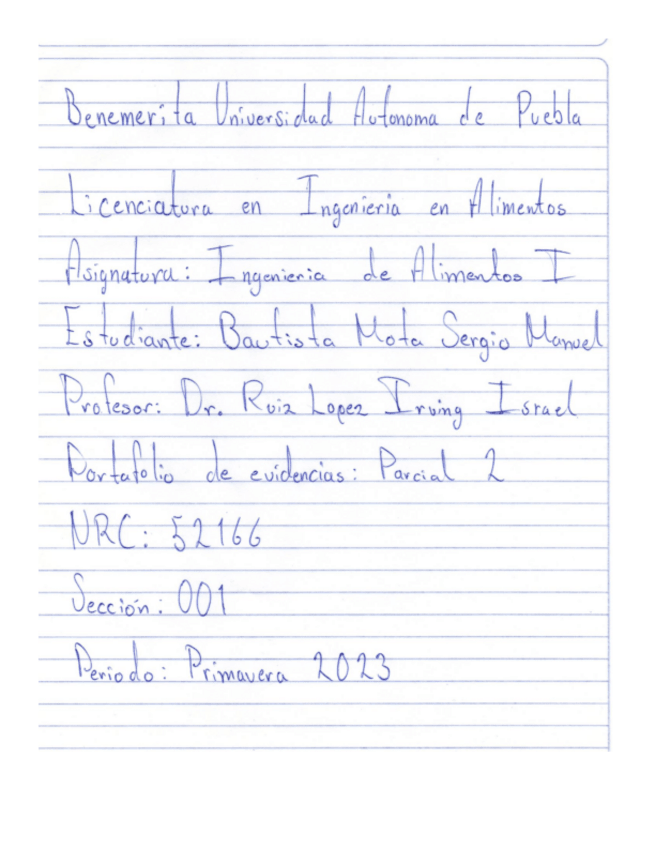 Benemerita Universidad Autonoma de Puebla
Licenciatura en Ingenieria en Alimentos
Asignatura: Ingenieria de Alimentos I
Estudiante: Bautista Mota Sergio Manuel
Profesor: Dr. Ruiz Lopez Irving Israel
Portafolio de evidencias: Parcial 2
NRC: 52166
Sección: 001
Periodo: Primavera 2023